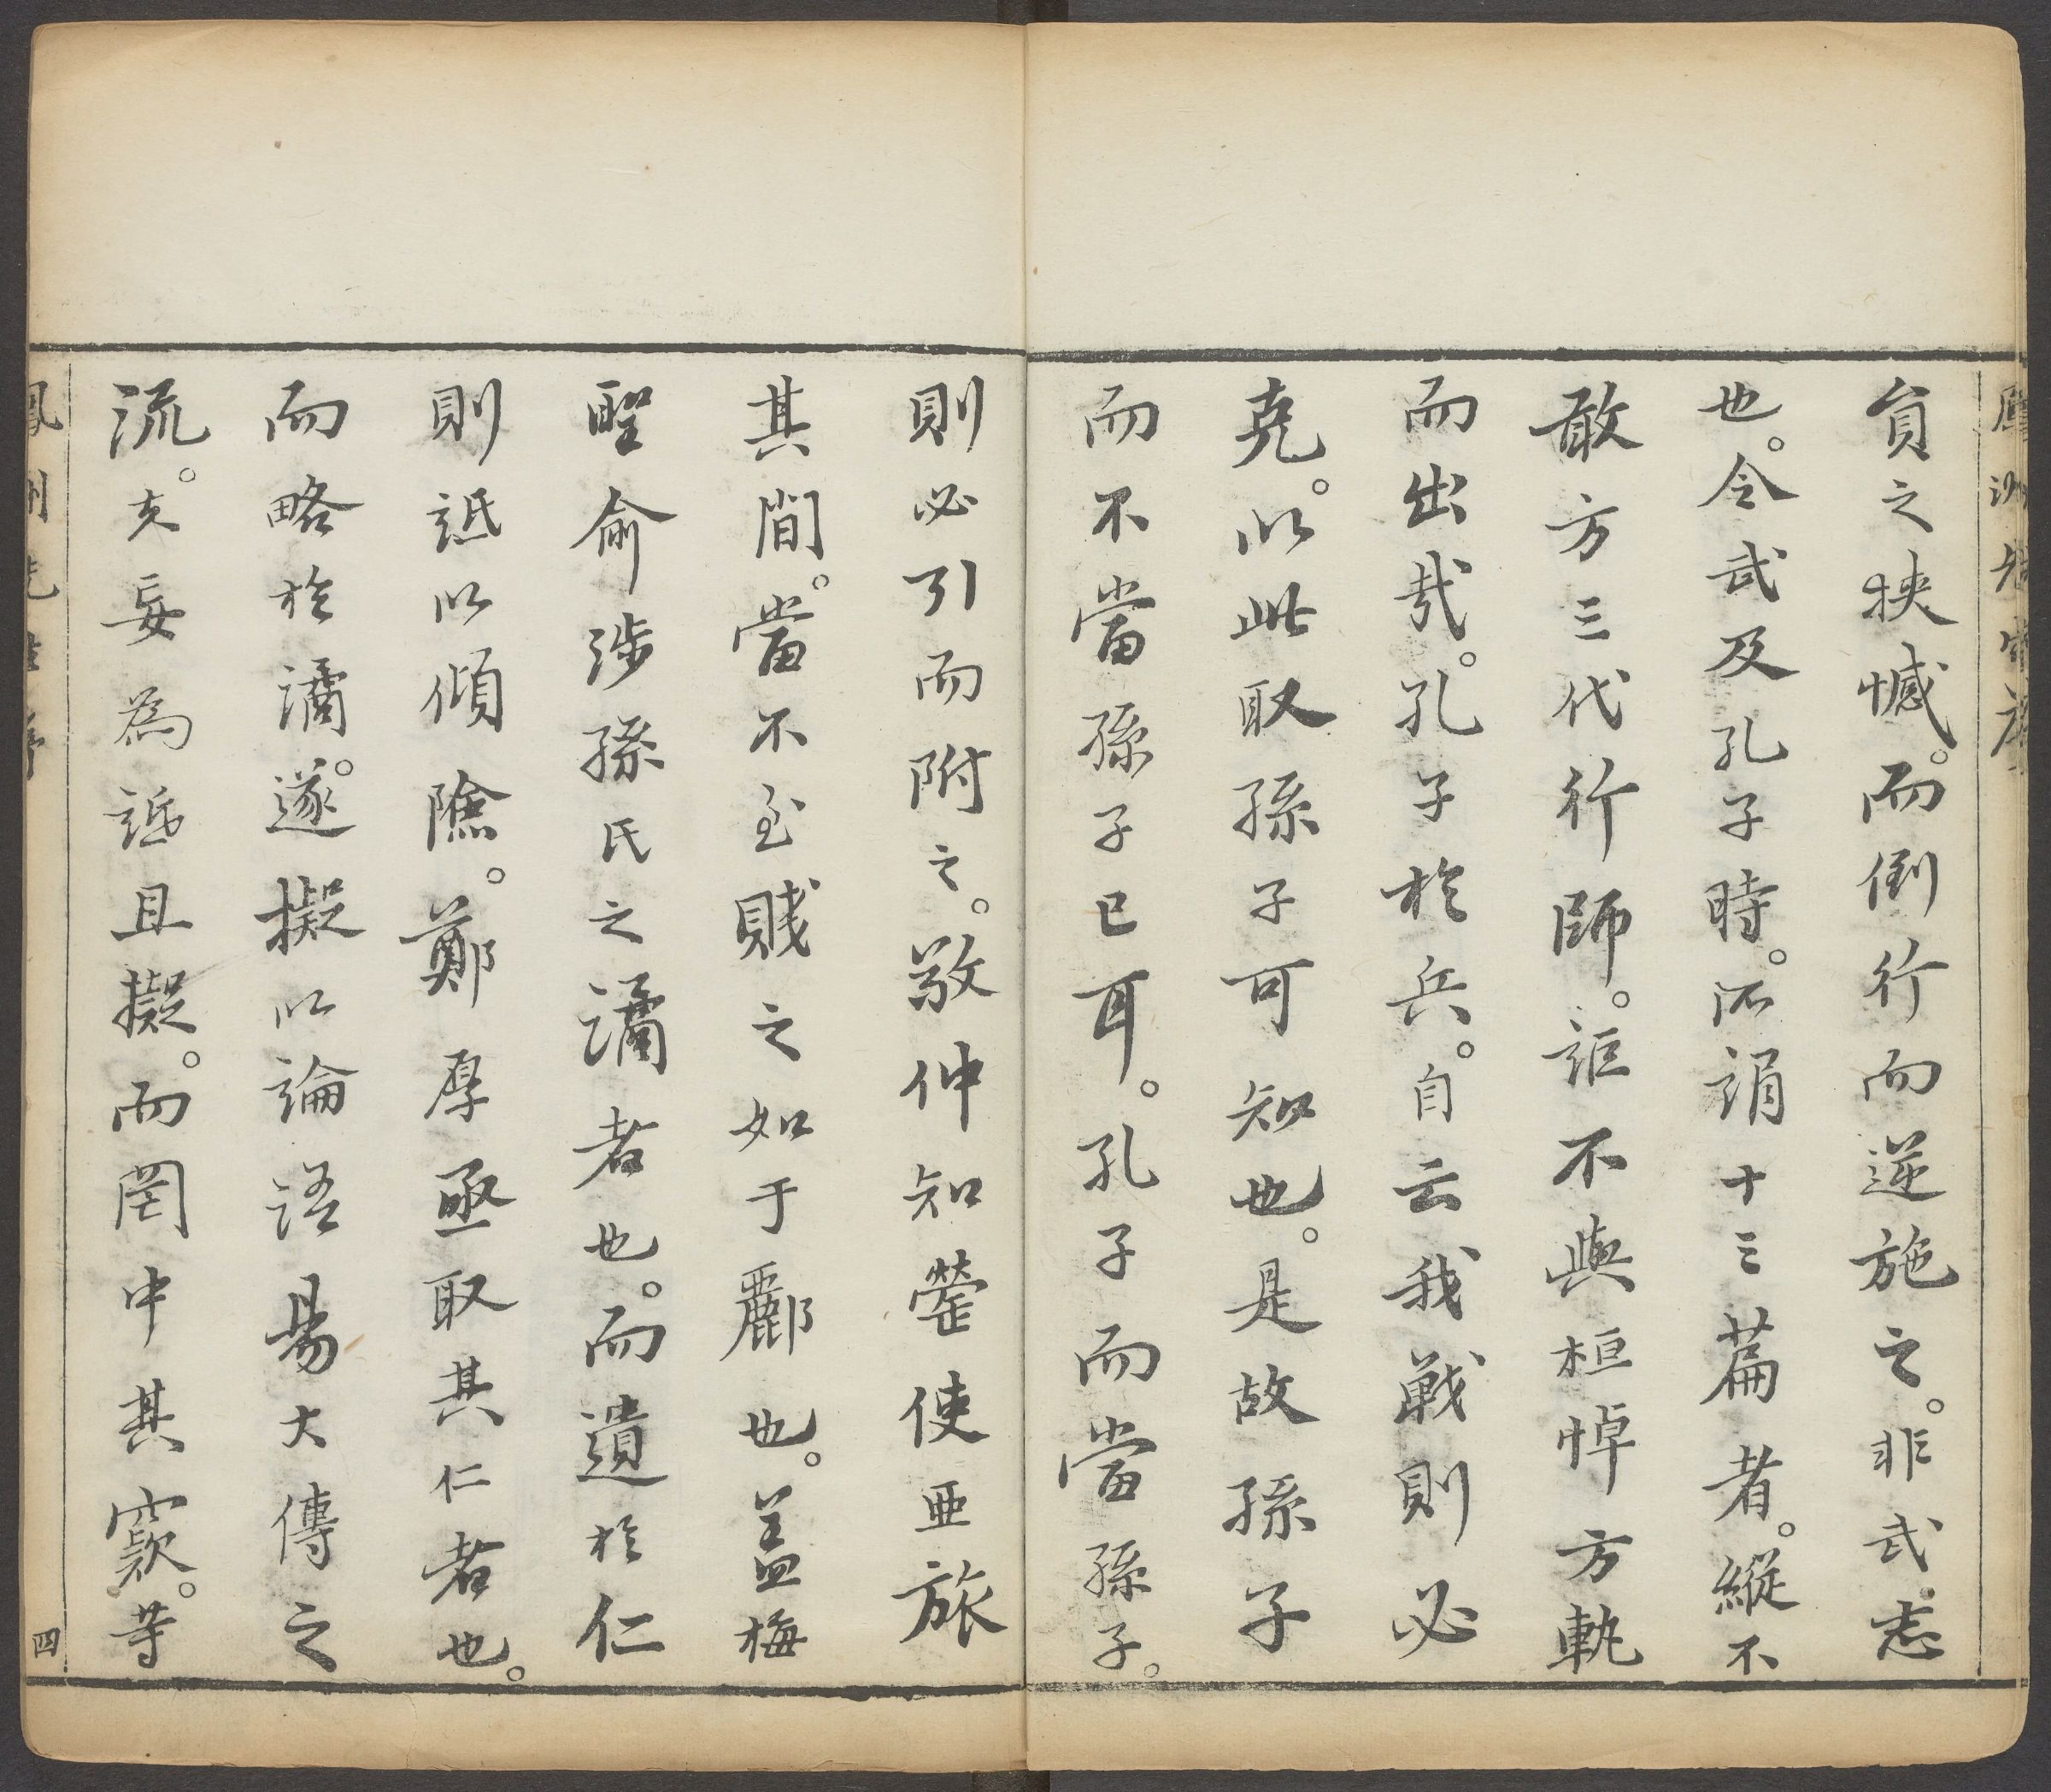 員之狹憾。而倒行而逆施之。非武志
也。令武及孔子時。所謂十三篇者。縱不
敢方三代行師。詎不與桓悼方軌
而出哉。孔子於兵。自云我戰則必
克。以此取孫子可知也。是故孫子
而不當孫子已耳。孔子而當孫子。
則必引而附之。敬仲知罃使亞旅
其間。當不至賤之如于酈也。葢梅
聖俞涉孫氏之譎者也。而遺於仁
則詆以傾險。鄭厚亟取其仁者也。
而略於譎。遂擬以論語易大傳之
流。夫妄為詆且擬。而罔中其窾。等
四